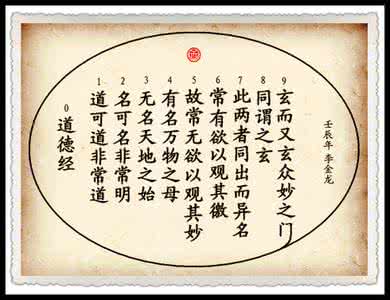 0 道德经
1 道可道非常道
2 名可名非常明
3 无名天地之始
4 有名万物之母
5 故常无欲以观其妙
6 常有欲以观其徼
7 此两者同出而异名
8 同谓之玄
9 玄而又玄众妙之门
壬辰年 李金龙